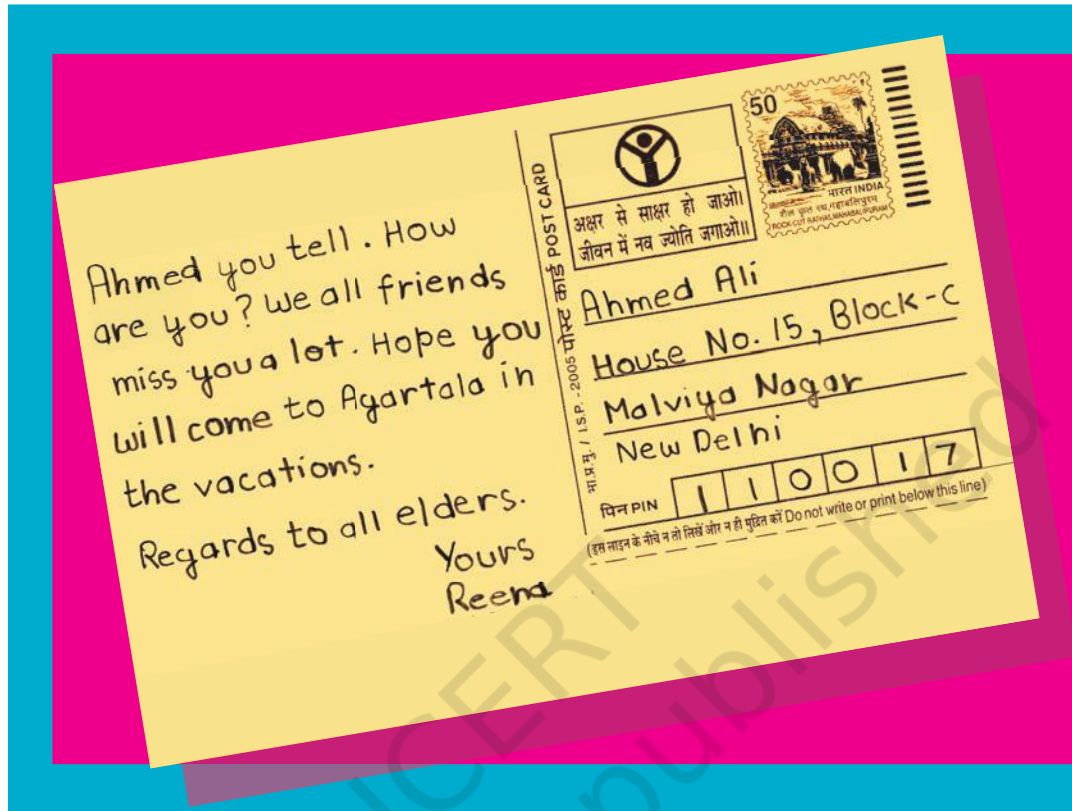 Ahmed you tell. How
are you? We all friends
miss you a lot. Hope you
will come to Agartala in
the vacations.
Regards to all elders.
Yours
Reena
भा.प्र.मु. / I.S.P. -2005 पोस्ट कार्ड POST CARD
अक्षर से साक्षर हो जाओ।
जीवन में नव ज्योति जगाओ॥
50
भारत INDIA
शैल कृत रथ, महाबलिपुरम
ROCK-CUT RATHAS, MAHABALIPURAM
Ahmed Ali
House No. 15, Block-C
Malviya Nagar
New Delhi
पिन PIN 110017
(इस लाइन के नीचे न तो लिखें और न ही मुद्रित करें Do not write or print below this line)
NCERT
published